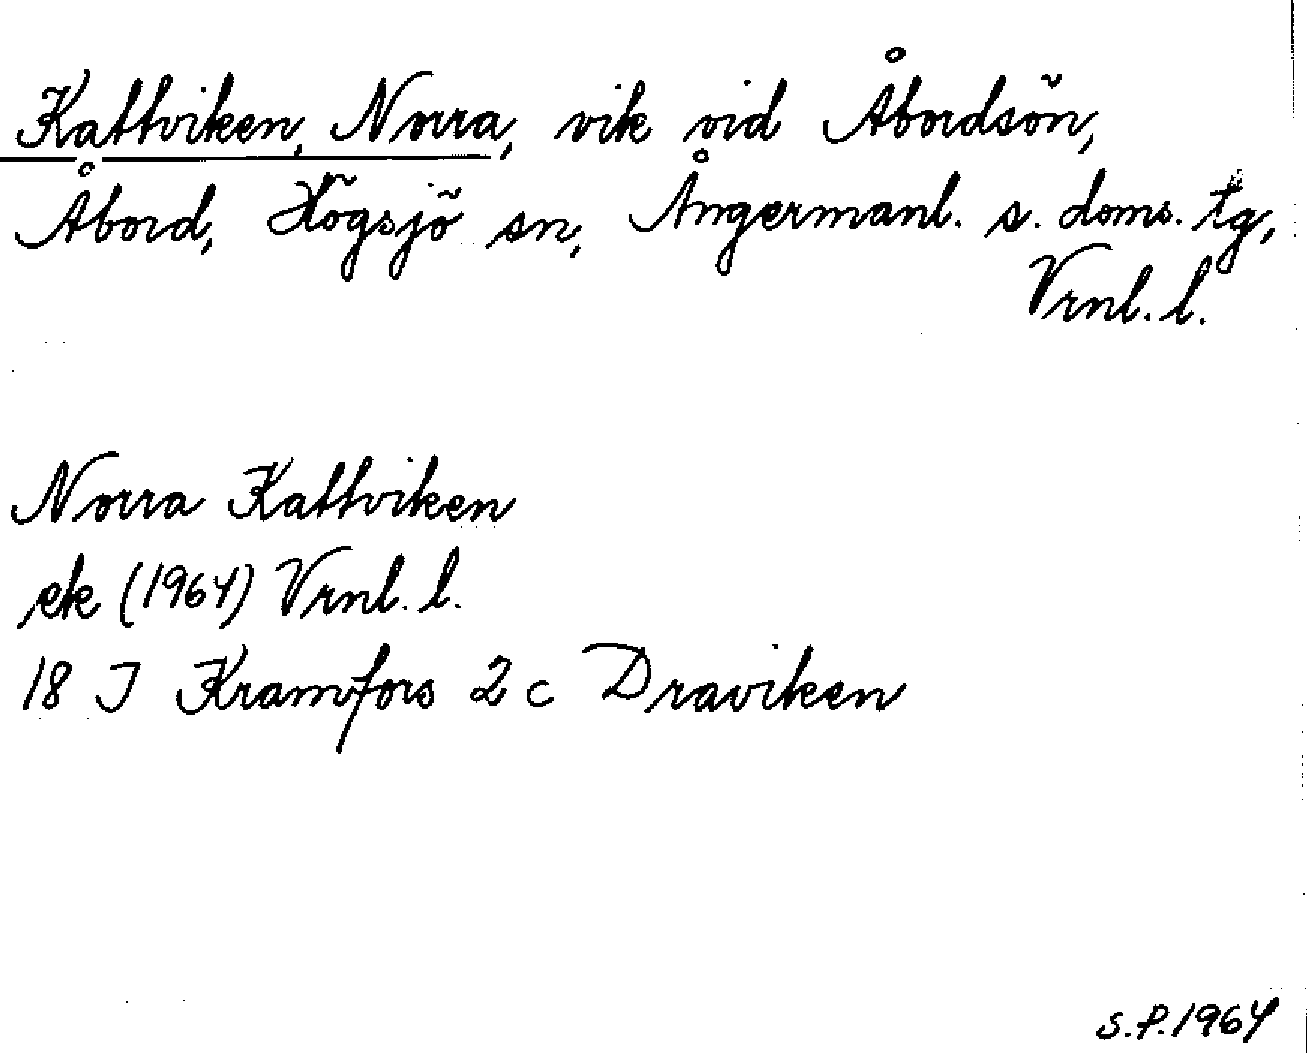 Kattviken, Norra, vik vid Åbordsön,
Åbord, Högsjö sn, Ångermanl. s. doms. tg,
Vrnl. l.
Norra Kattviken
ek (1964) Vrnl. l.
18 I Kramfors 2 c Draviken
S.P.1964